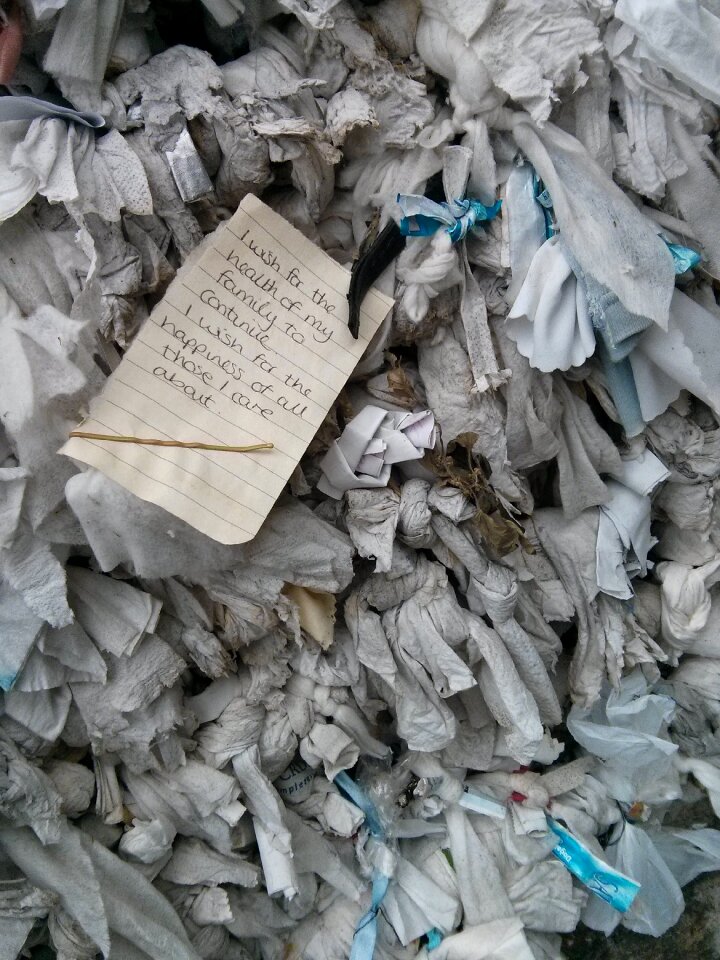 I wish for the
health of my
family to
continue.
I wish for the
happiness of all
those I care
about.